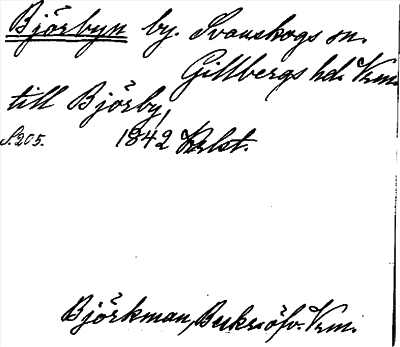 Björbyn by. Svanskogs sn.
Gillbergs hd. Vrm.
till Björby,
S. 205. 1842 Krlst.
Björkman, Beskr. öfv. Vrm.